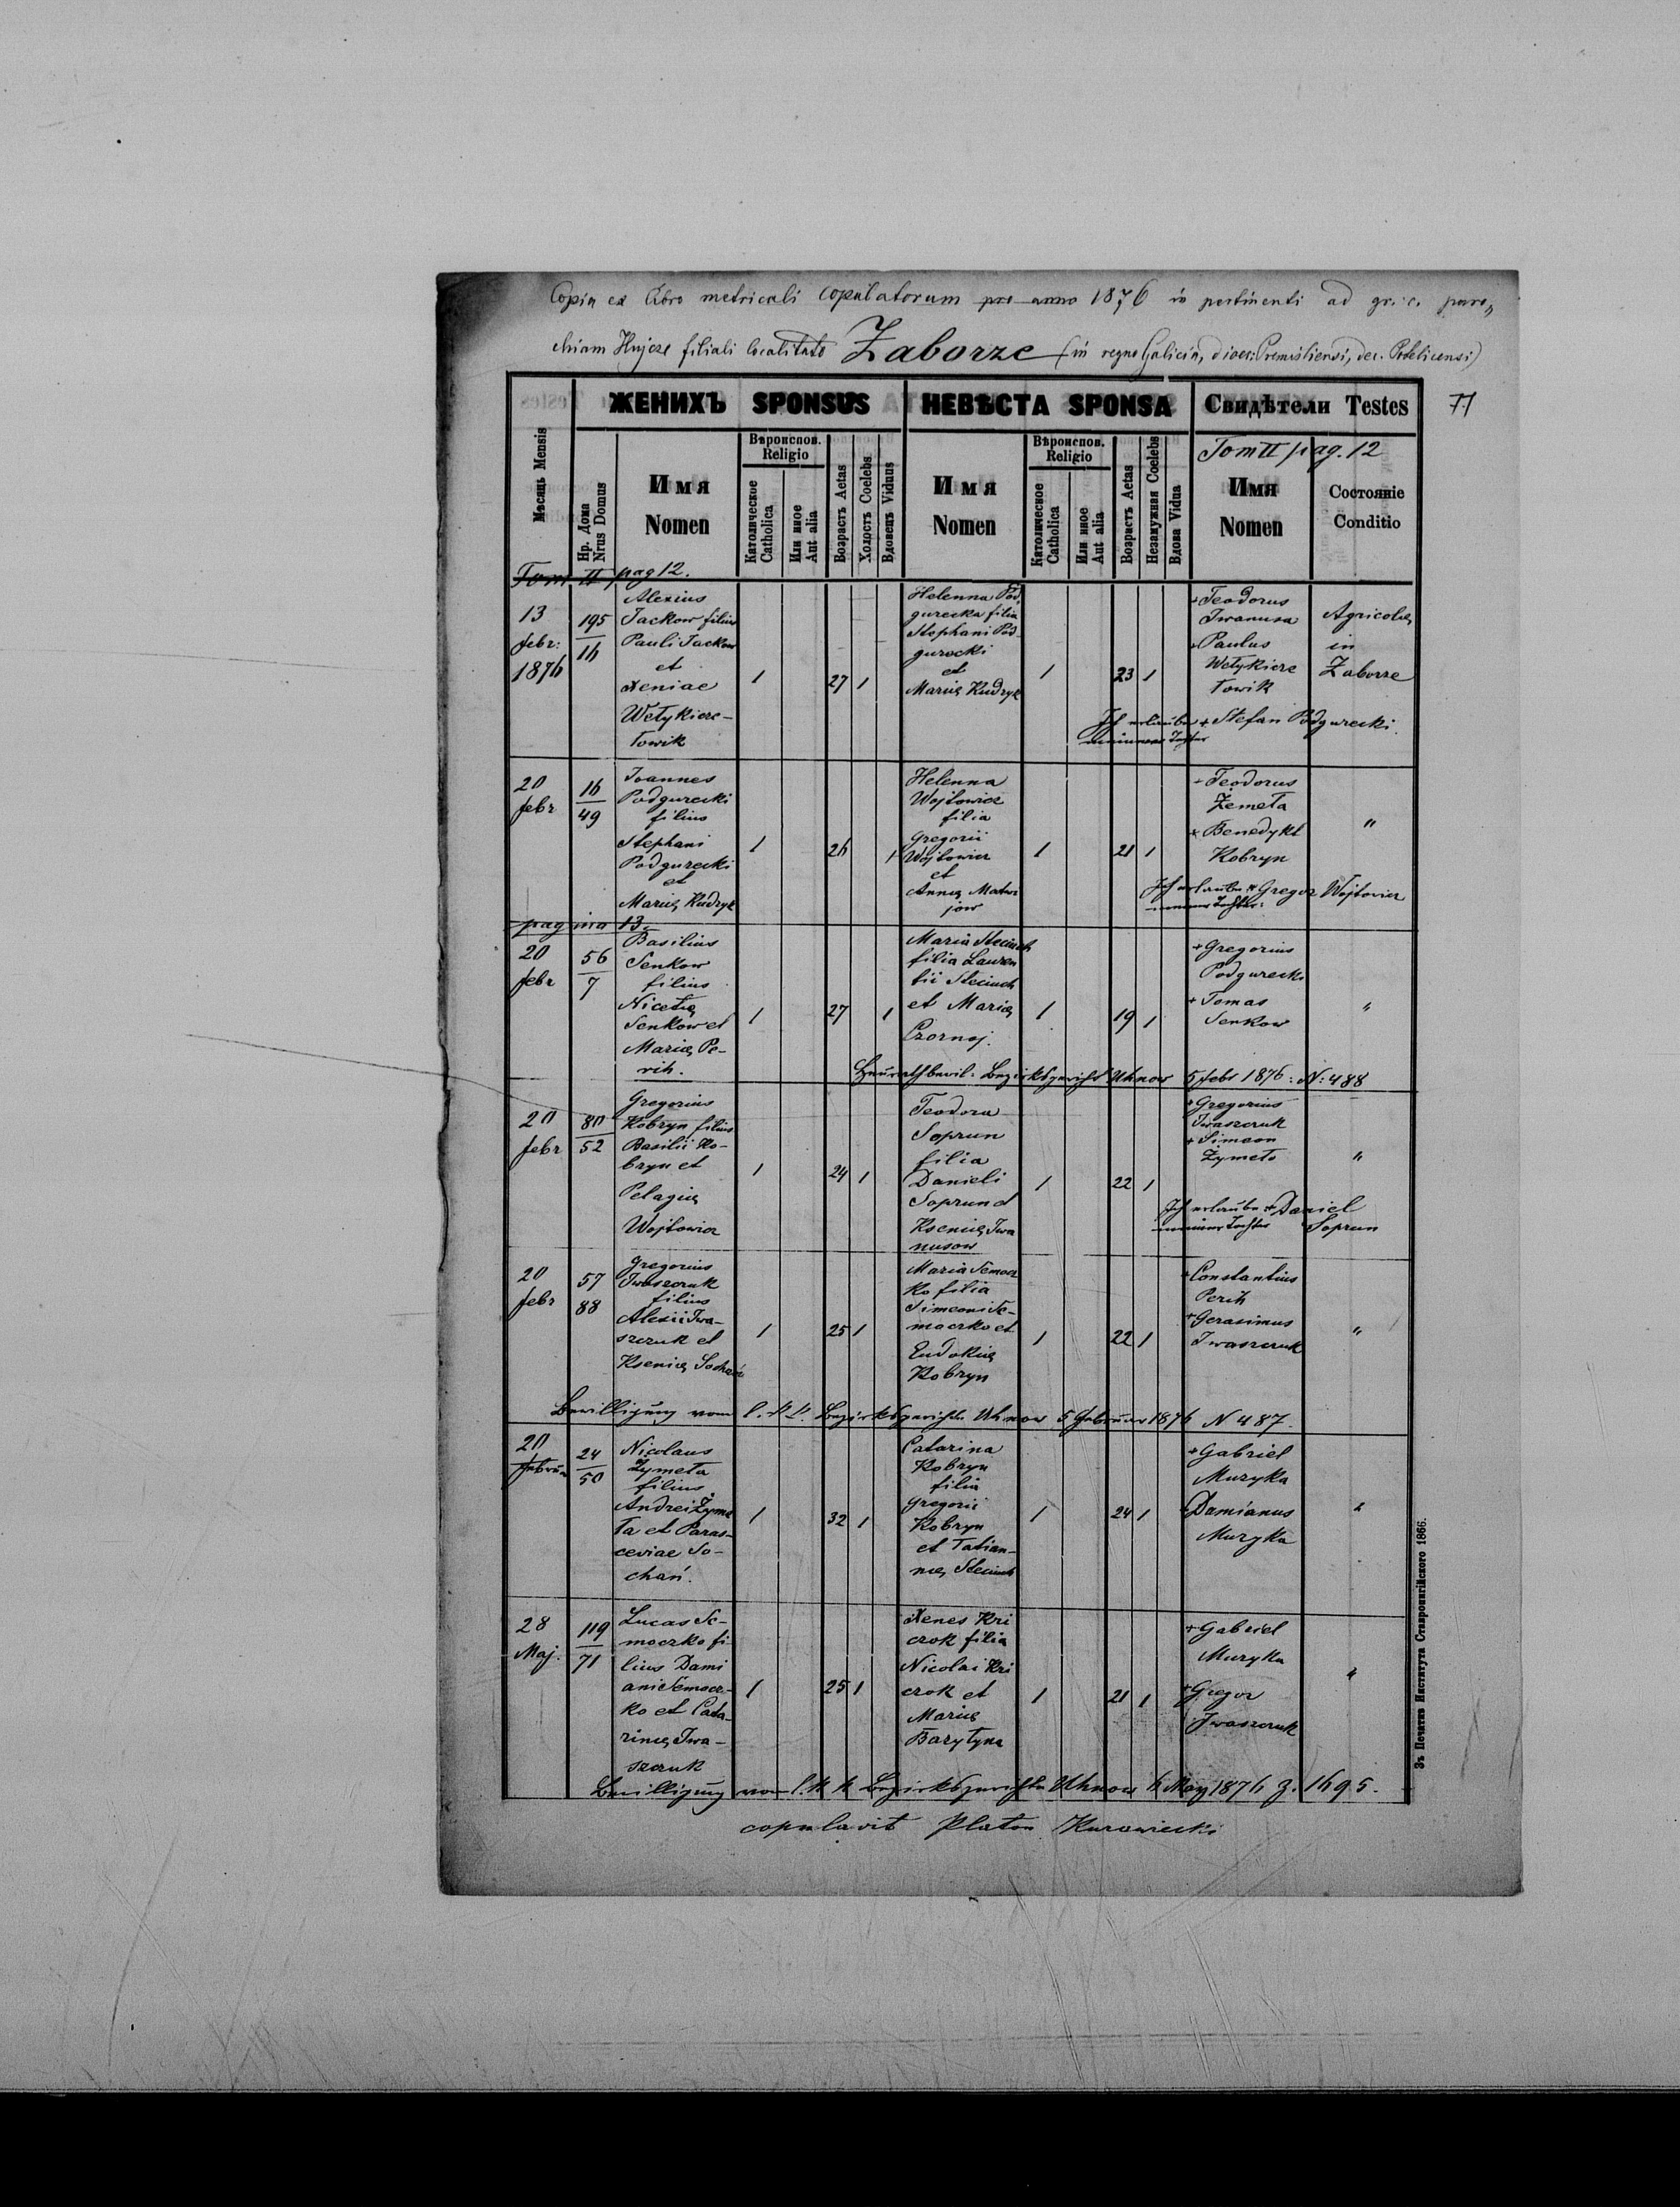 Copia ex libro metricali copulatorum pro anno 1876 in pertinenti ad gr. c. paro,,
chiam Hujcze filiali localitate Zaborze (in regno Galicia, dioec: Premisliensi, dec. Potelicensi)
77
ЖЕНИХЪ SPONSUS
НЕВѢСТА SPONSA
Свидѣтели Testes
Мѣсяцъ Mensis
Нр. Дома
Nrus Domus
Имя
Nomen
Вѣроиспов.
Religio
Католическое
Catholica
Или иное
Aut alia
Возрастъ Aetas
Холостъ Coelebs
Вдовецъ Viduus
Имя
Nomen
Вѣроиспов.
Religio
Католическое
Catholica
Или иное
Aut alia
Возрастъ Aetas
Незамужная Coelebs
Вдова Vidua
Tom II pag. 12
Имя
Nomen
Состояніе
Conditio
Tom II pag 12.
13
febr:
1876
195
16
Alexius
Jackow filius
Pauli Jackow
et
Xeniae
Wetykiere-
towik
1
27
1
Helenna Pod,
gurecka filia
Stephani Pod
gurecki
et
Marię Kudryk
1
23
1
+Teodorus
Iwanusa
+Paulus
Wetykiere
towik
Agricolę
in
Zaborze
Ich erlaube + Stefan Podgurecki.
meiner Tochter
20
febr
16
49
Joannes
Podgurecki
filius
Stephani
Podgurecki
et
Marię Kudryk
1
26
1
Helenna
Wojtowicz
filia
Gregorii
Wojtowicz
et
Annę Matwi
jow
1
21
1
+Teodorus
Żemeta
+Benedykt
Kobryn
"
Ich erlaube + Gregor Wojtowicz
meiner Tochter:
pagina 13.
20
febr
56
7
Basilius
Senkow
filius
Nicetę
Senkow et
Marię Pe-
rih.
1
27
1
Maria Steciuch
filia Lauren
tii Steciuch
et Marię
Czornej.
1
19
1
+Gregorius
Podgurecki
+Tomas
Senkow
"
Bezirksgericht Uhnow 5 febr 1876: N: 488
20
febr
80
52
Gregorius
Kobryn filius
Basilii Ko-
bryn et
Pelagię
Wojtowicz
1
24
1
Teodora
Soprun
filia
Danieli
Soprun et
Ksenię Iwa
nusow
1
22
1
+Gregorius
Iwaszczuk
+Simeon
Żymeta
"
Ich erlaube + Daniel
meiner Tochter Soprun
20
febr
57
88
Gregorius
Iwaszczuk
filius
Alexii Iwa-
szczuk et
Ksenię Sochań
1
25
1
Maria Semocz
ko filia
Simeoni Se-
moczko et
Eudokię
Kobryn
1
22
1
+Constantius
Perih
+Gerasimus
Iwaszczuk
"
Bewilligung vom Bezirksgerichte Uhnow 5 Februar 1876 N 487.
20
Februar
24
50
Nicolaus
Żymeta
filius
Andrei Żyme
ta et Paras-
ceviae So-
chań.
1
32
1
Catarina
Kobryn
filia
Gregorii
Kobryn
et Tatian-
nę Steciuch
1
24
1
+Gabriel
Muzyka
+Damianus
Muzyka
"
28
Maj.
119
71
Lucas Se-
moczko fi
lius Dami
ani Semocz-
ko et Cata-
rinę Iwa-
szczuk
1
25
1
Xenes Kri
czok filia
Nicolai Kri
czok et
Marię
Barytyna
1
21
1
+Gabriel
Muzyka
+Gregor
Iwaszczuk
"
Bewilligung vom k. k. Bezirksgerichte Uhnow 6 May 1876 Z. 1695.
copulavit Platon Kurowiecki
Зъ Печатнѣ Института Ставропигійского 1866.